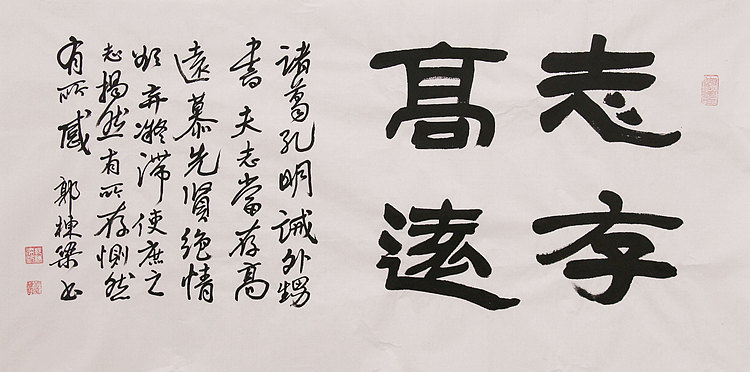 志存
髙遠
諸葛孔明誡外甥
書 夫志當存高
遠慕先賢絕情
欲弃凝滯使庶之
志揚然有所存惻然
有所感 郭棟梁书